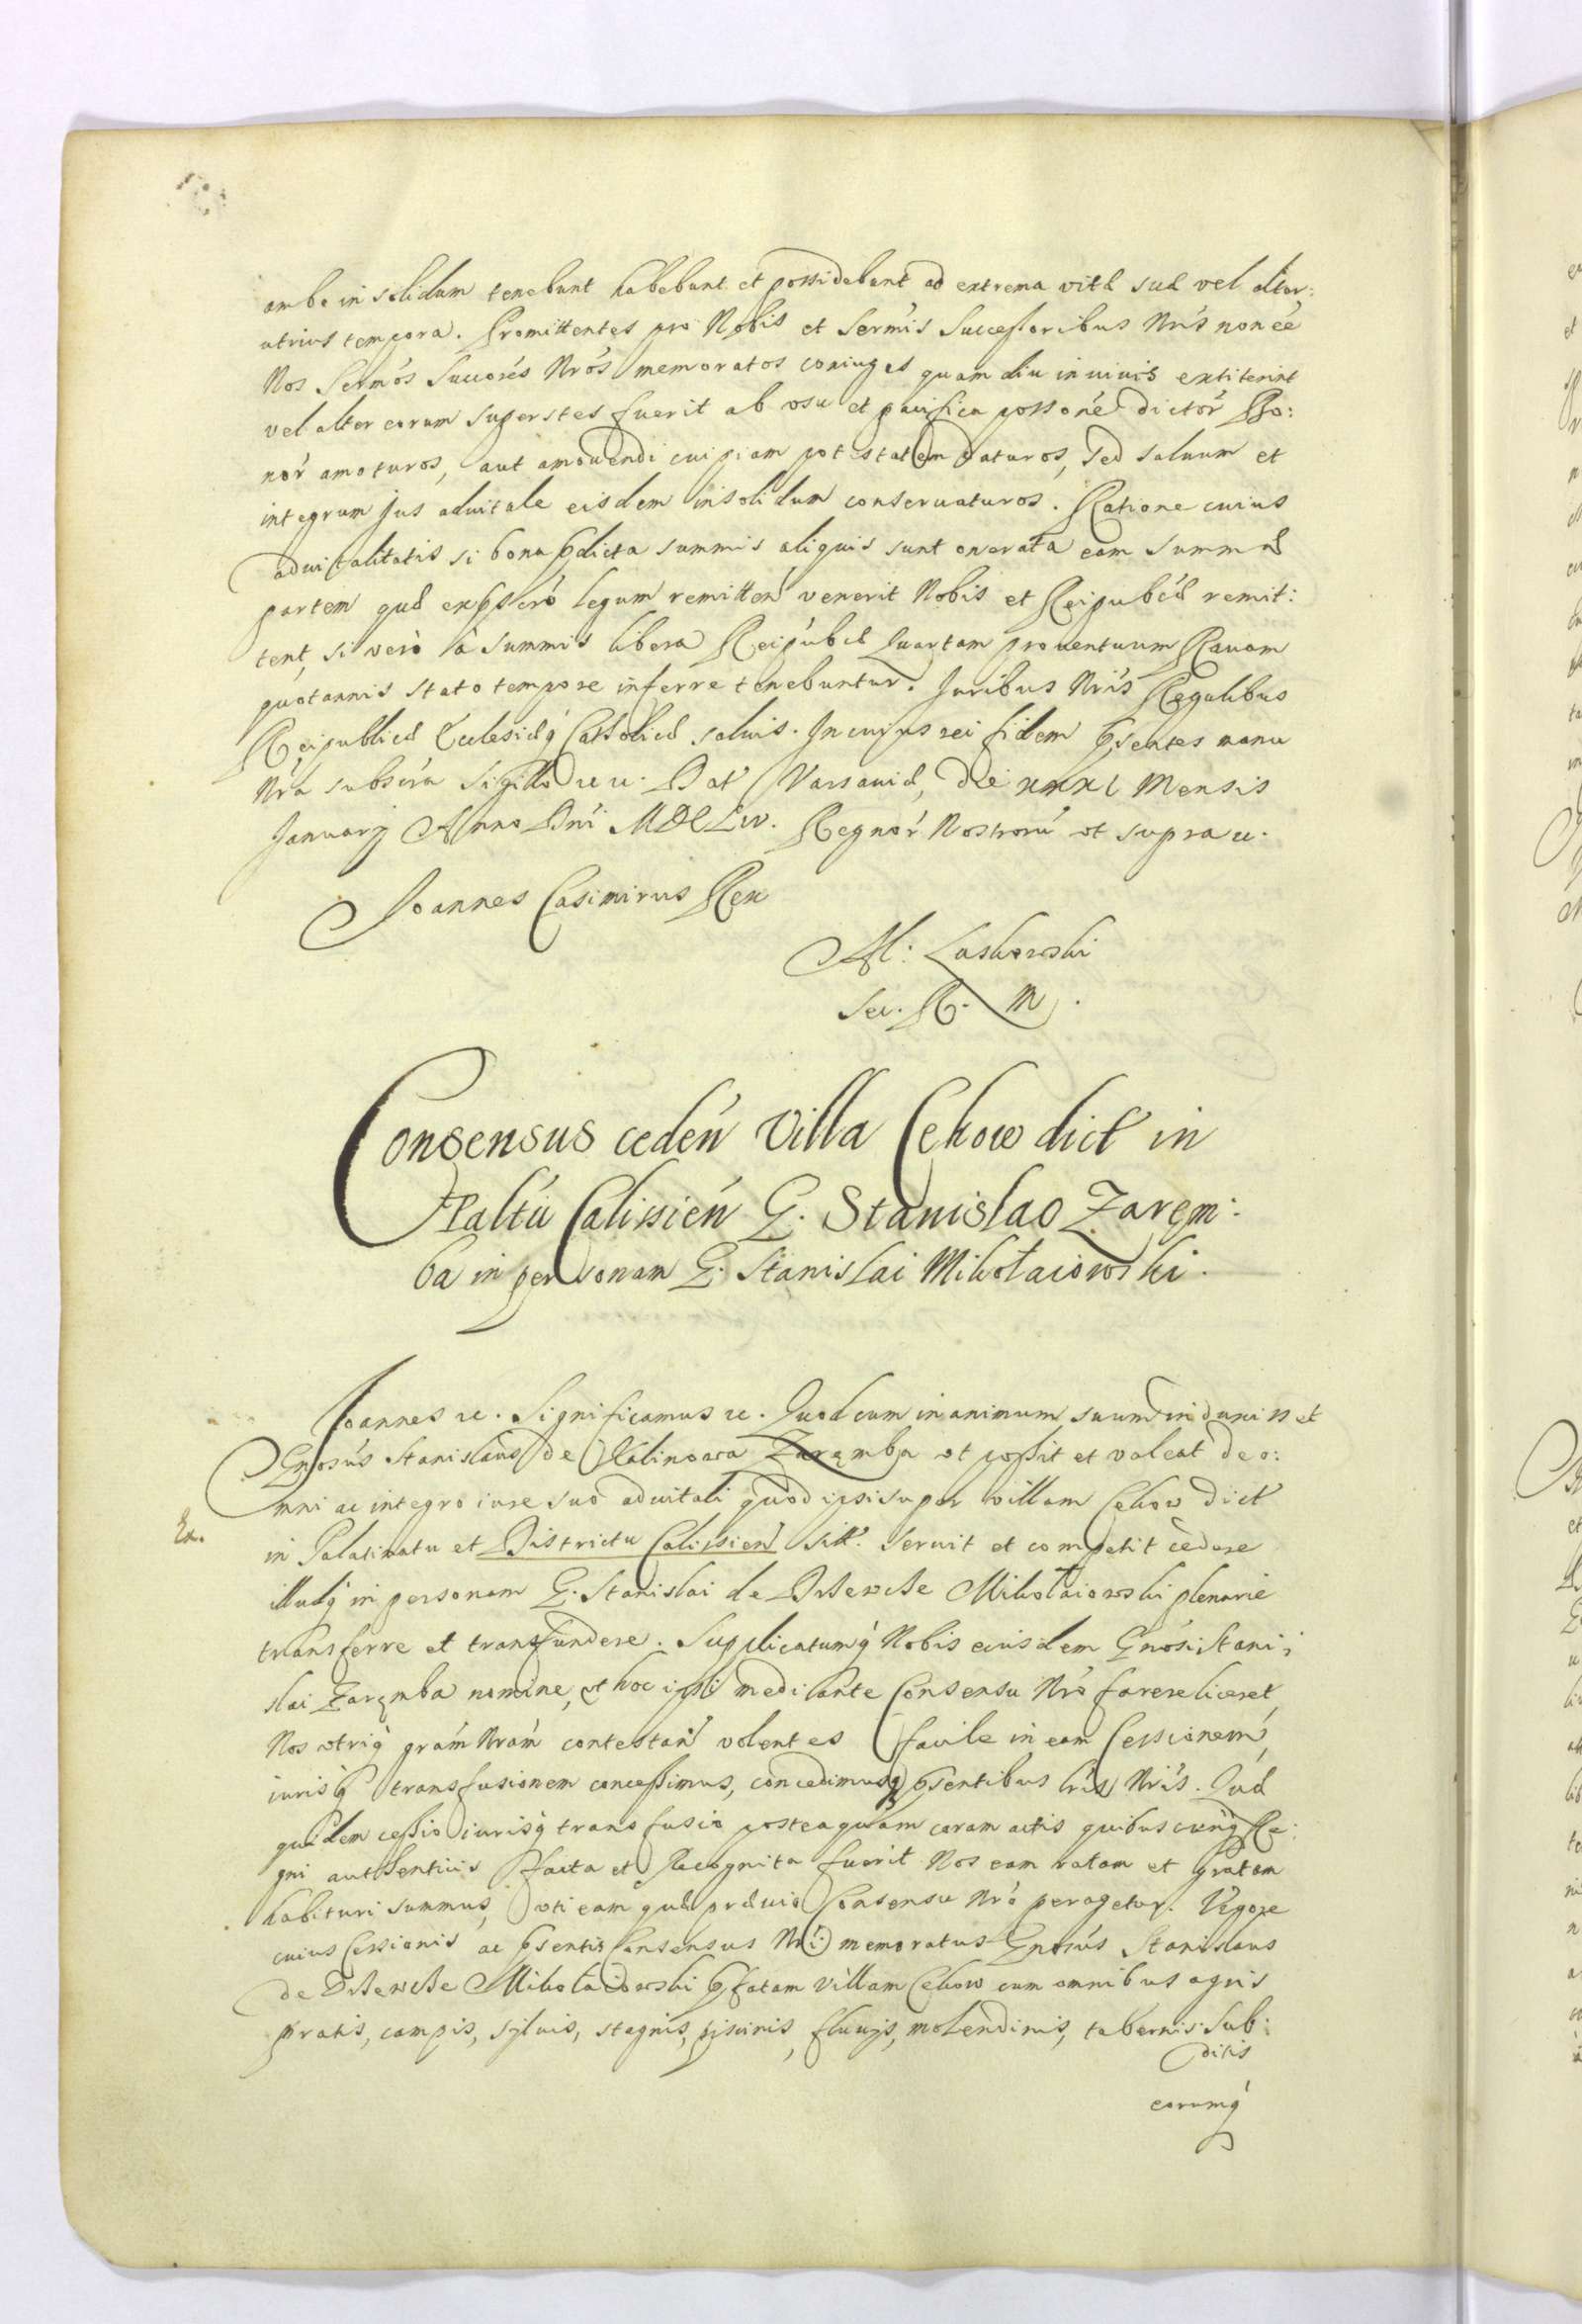 ambo in solidum tenebunt habebunt et possidebunt ad extrema vitæ suæ vel alter:
utrius tempora. Promittentes pro Nobis et Serm̃is Successoribus Nr̃is non eẽ
Nos Sermõs Succorẽs Nrõs memoratos coniuges quam diu in vivis extiterint
vel alter eorum superstes fuerit ab usu et pacifica possonẽ dictor̃ Bo:
nor̃ amoturos, aut amovendi cuipiam potestatem daturos, Sed salvum et
integrum jus advitale eisdem insolidum conservaturos. Ratione cuius
advitalitatis si bona p̱dicta summis aliquis sunt onerata eam summæ
partem quæ ex p̱scrõ legum remitten̄ venerit Nobis et Reipubcæ̃ remit:
tent, si verò à summis libera Reipubcæ̃ Quartam proventuum Ravam
quotannis stato tempore inferre tenebuntur. Juribus Nr̃is Regalibus
Reipublicæ Ecclesiæq́ Catholicæ salvis. In cuius rei fidem p̱sentes manu
Nrã subscrã Sigillo &c. Dat Varsaviæ, die XXXI Mensis
Januarij Anno Dnĩ MDCLIV. Regnor̃ Nostrorũ ut supra &c.
Joannes Casimirus Rex
Al: Laskowski
Sec. R. M.
Consensus ceden̄ Villa Cekow dict in
Paltũ Calissien̄ G. Stanislao Zaręm:
ba in personam G. Stanislai Mikołaiowski.
Joannes &c. Significamus &c. Quod cum in animum suum induxisset
Gnosũs Stanislaus de Kalinowa Zaręmba ut possit et valeat de o:
mni ac integro iure suo advitali quod ipsi super villam Cekow dict
in Palatinatu et Districtu Calissien̄ sitt. servit et competit cedere
illudq́ in personam G. Stanislai de Mikołaiowski plenarie
transferre et transfundere. Supplicatumq́ Nobis eiusdem Gnosĩ Stani:
slai Zaręmba nomine, ut hoc ipsi mediante Consensu Nrõ facere liceret,
Nos utriq́ grãm Nrãm contestari volentes facile in eam Cessionem,
iurisq́ transfusionem concessimus, concedimusq́ p̱sentibus lris̃ Nris̃. Quæ
quidem cessio iurisq́ transfusio posteaquam coram actis quibuscunq́ Re:
gni authenticis facta et Recognita fuerit Nos eam ratam et gratam
habituri summus, uti eam quæ prævio Consensu Nrõ peragetur. Vigore
cuius Cessionis ac p̱sentis Consensus Nrĩ memoratus Gnosũs Stanislaus
de Mikołaiowski p̱fatam Villam Cekow cum omnibus agris
pratis, campis, sylvis, stagnis, piscinis, fluvijs, molendinis, tabernis. Sub:
ditis
eorumq́